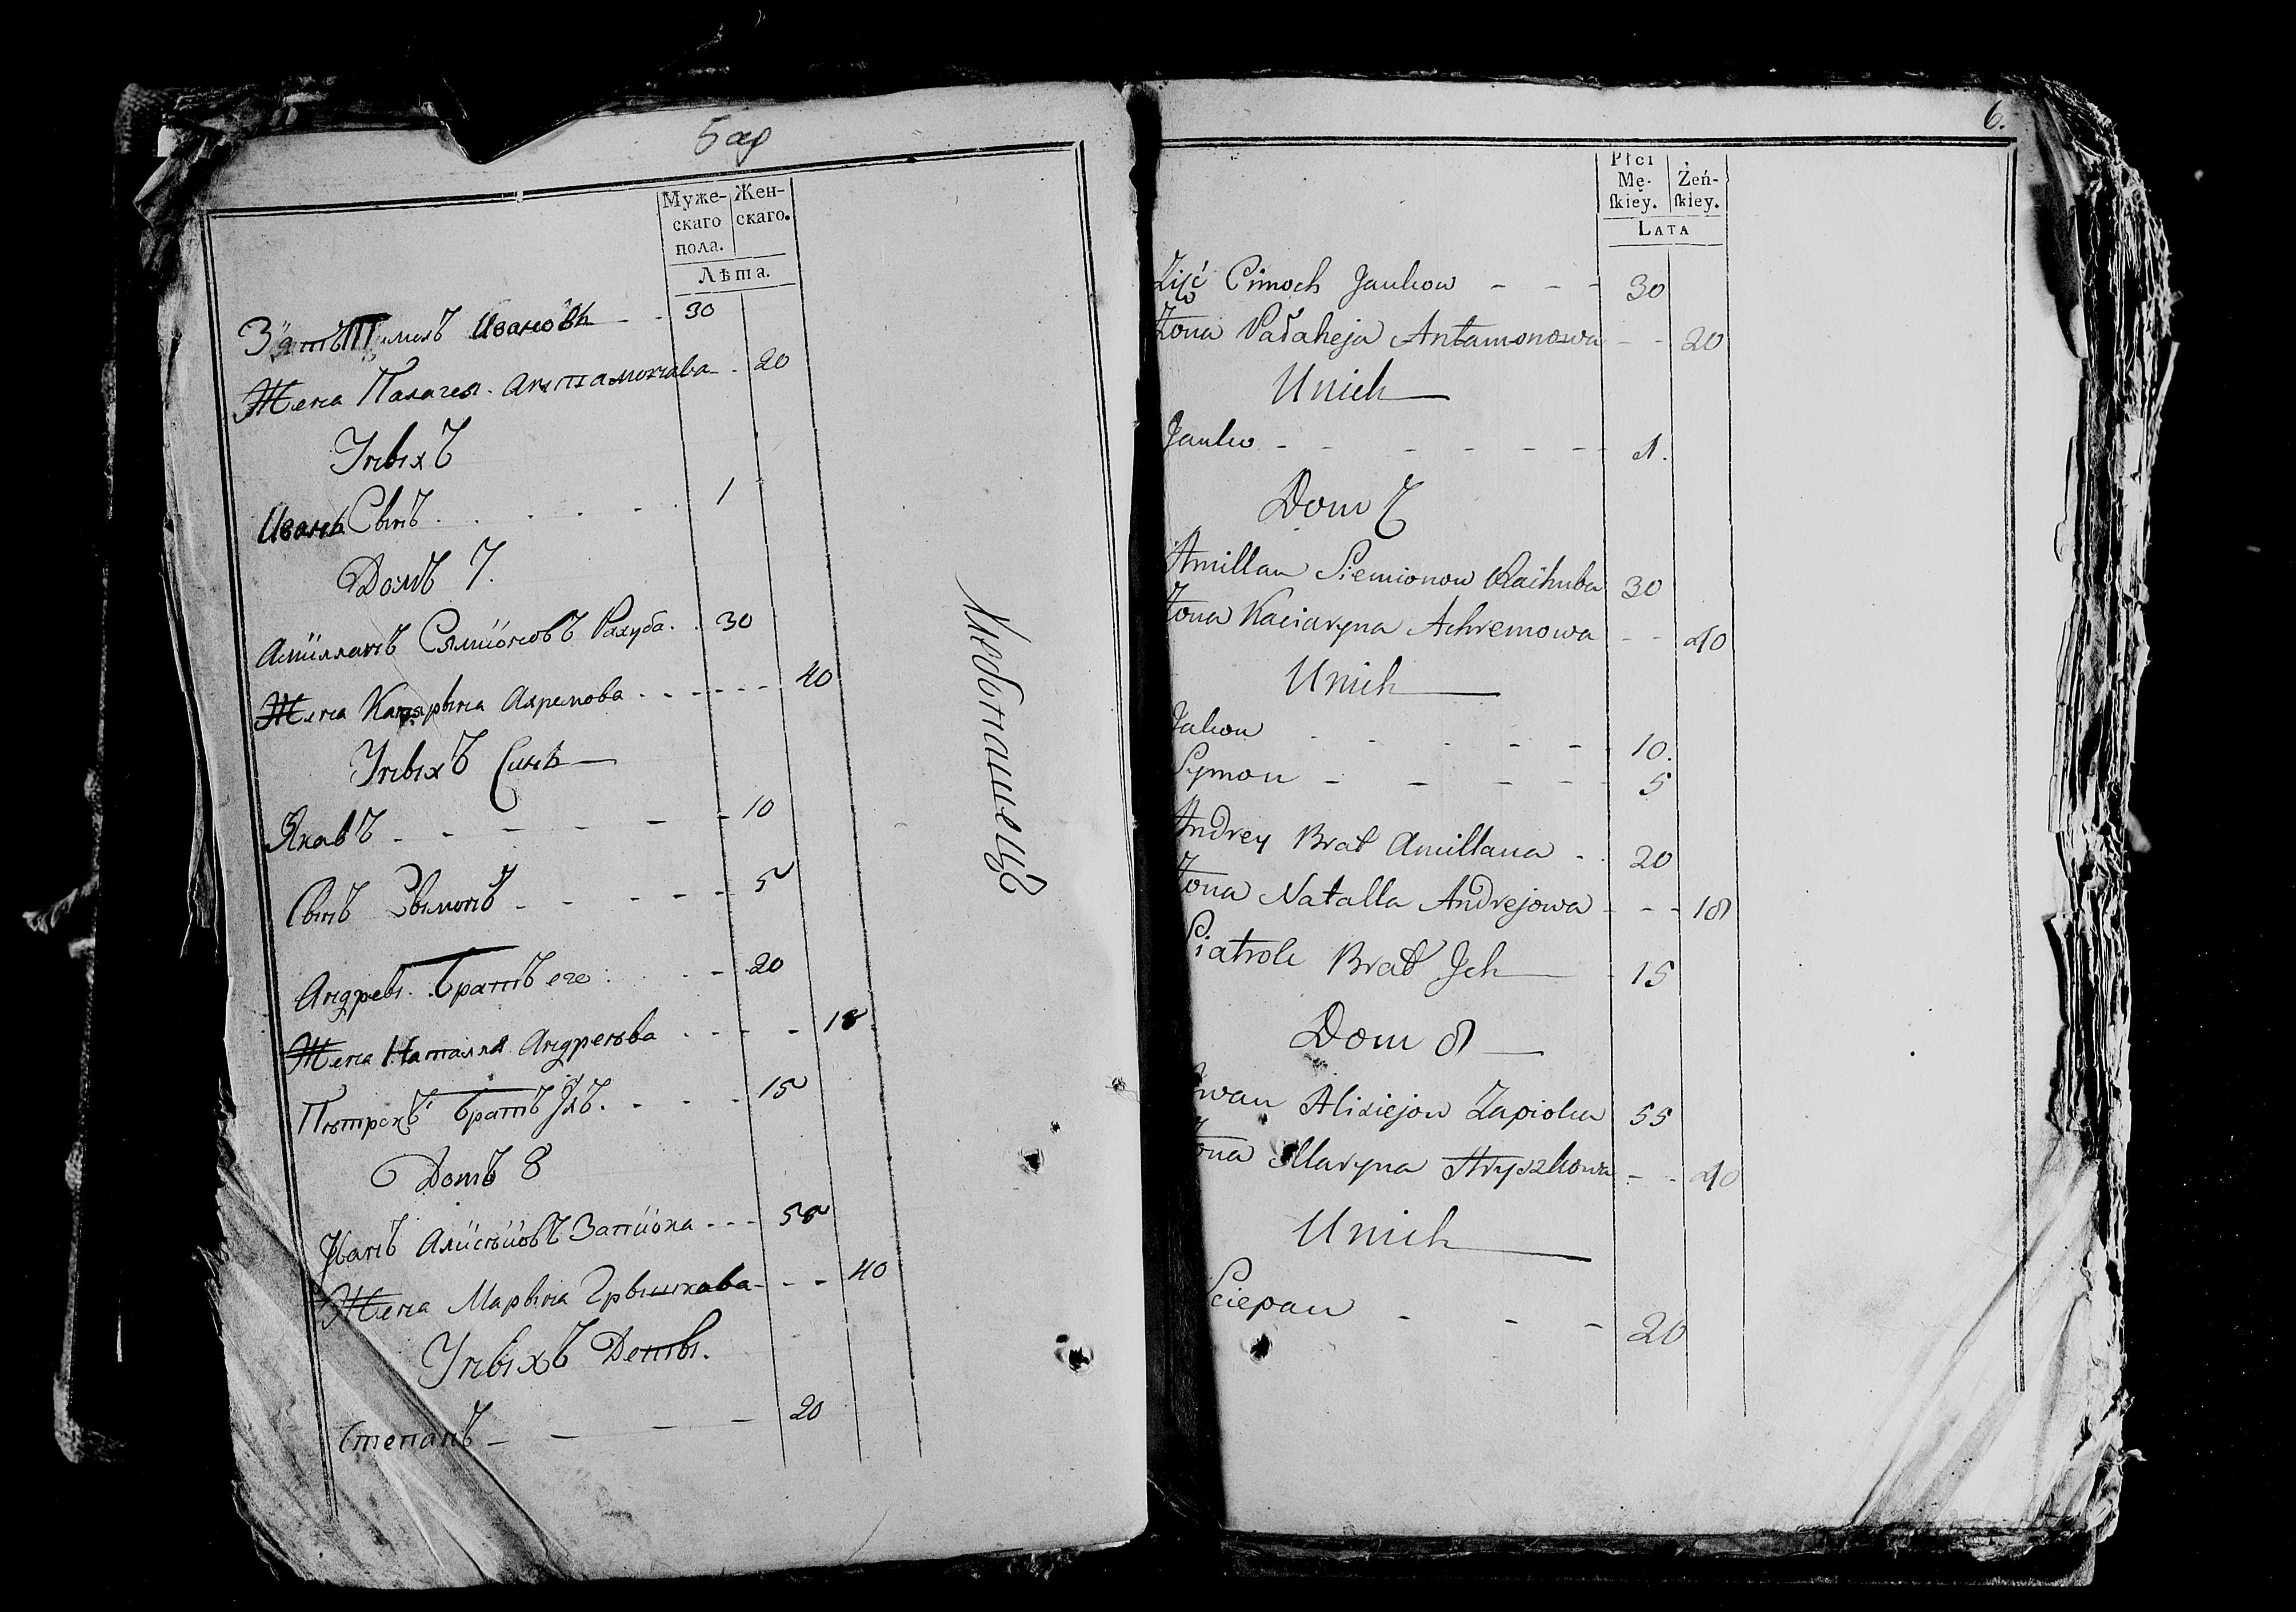 5 об
Муже-
скаго
пола.
Жен-
скаго.
Лѣта.
Зять Тимохъ Ивановъ - - 30
Жена Палагея Антамонава - 20
Уныхъ
Иванъ Сынъ - - - 1
Домъ 7.
Амилланъ Сямионовъ Рахуба - 30
Жена Катярына Ахремова - - - 40
Уныхъ Сынъ
Якавъ - - - - - - 10
Сынъ Сымонъ - - - - - 5
Андрей Братъ его - - 20
Жена Наталля Андреева - - - 18
Пётрокъ Братъ Iхъ - - - 15
Домъ 8
Iванъ Алисѣйовъ Запиока - - - 55
Жена Марына Грышкава - - - 40
Уныхъ Деты.
Степанъ - - - - 20
6.
Płci
Mę-
ſkiey.
Żeń-
ſkiey.
LATA
Zięć Cimoch Jankow - - - 30
Żona Pałaheja Antamonowa - - 20
Unich
Janko - - - - - - 1.
Dom 7
Amillan Siemionow Rachuba 30
Żona Kaciaryna Achremowa - - 40
Unich
Jakow - - - - - 10.
Symon - - - - 5
Andrey Brat Amillana - 20
Żona Natalla Andrejowa - - - 18
Piatrok Brat Jch 15
Dom 8
Iwan Alixiejow Zapioka 55
Żona Maryna Hryszkowa - - 40
Unich
Sciepan - - - 20